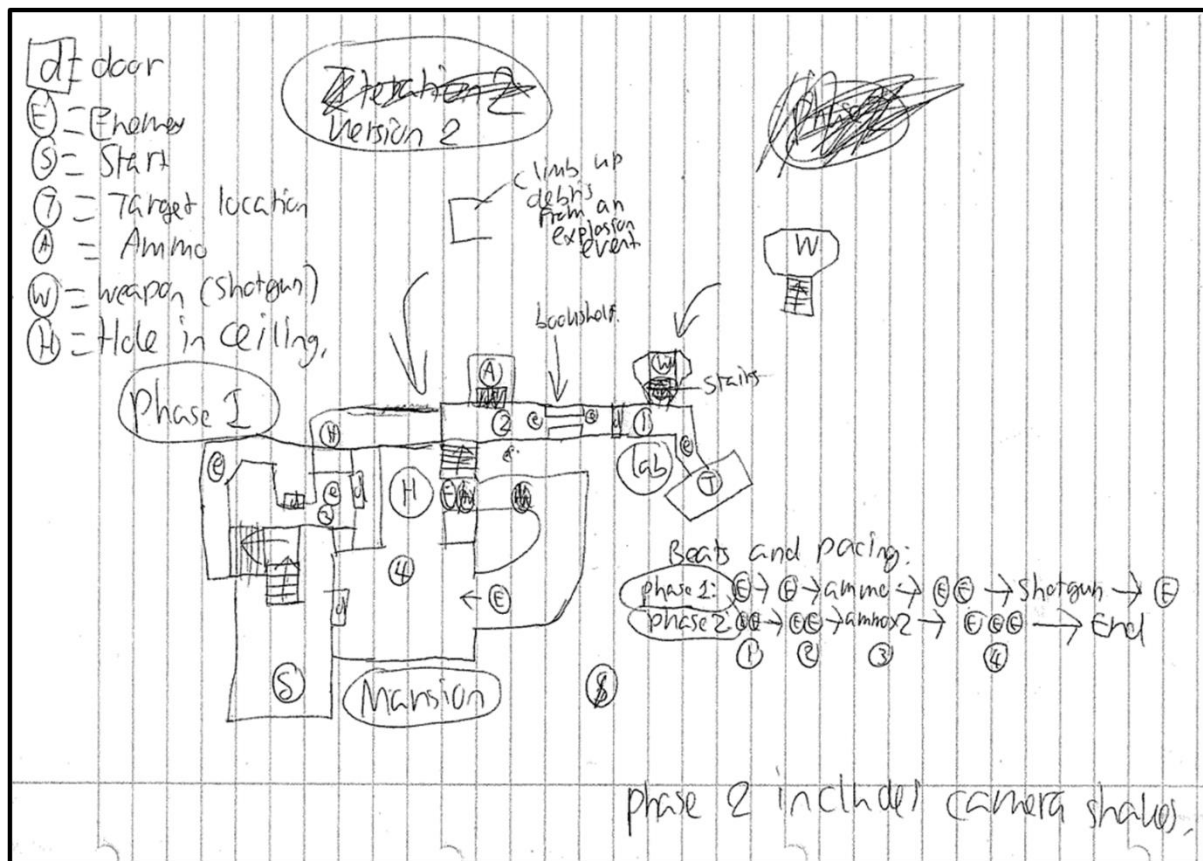 d = door
E = Enemy
S = Start
T = Target location
A = Ammo
W = weapon (shotgun)
H = Hole in ceiling.
Iteration 2
version 2
Phase
climb up
debris
from an
explosion
event
W
bookshelf.
stairs
W
A
phase 1
H
2
e
e
d
1
e
lab
T
e
d
e
2
d
H
E
A
4
E
d
S
Mansion
S
Beats and pacing:
phase 1: E → E → ammo → E E → shotgun → E
phase 2: E E → E E → ammox2 → E E E → End
1 2 3 4
phase 2 includes camera shakes.